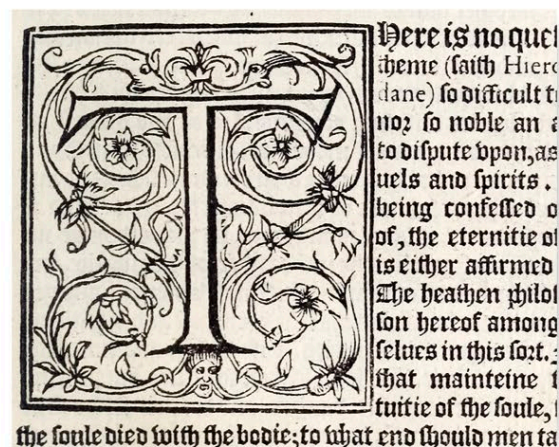 There is no que
theme (ſaith Hiero
dane) ſo difficult t
noꝛ ſo noble an
to diſpute vpon, as
uels and ſpirits .
being confeſſed o
of, the eternitie o
is either affirmed
The heathen philoſ
ſon hereof among
ſelues in this ſoꝛt.
that mainteine
tuitie of the ſoule,
the ſoule died with the bodie; to what end ſhould men